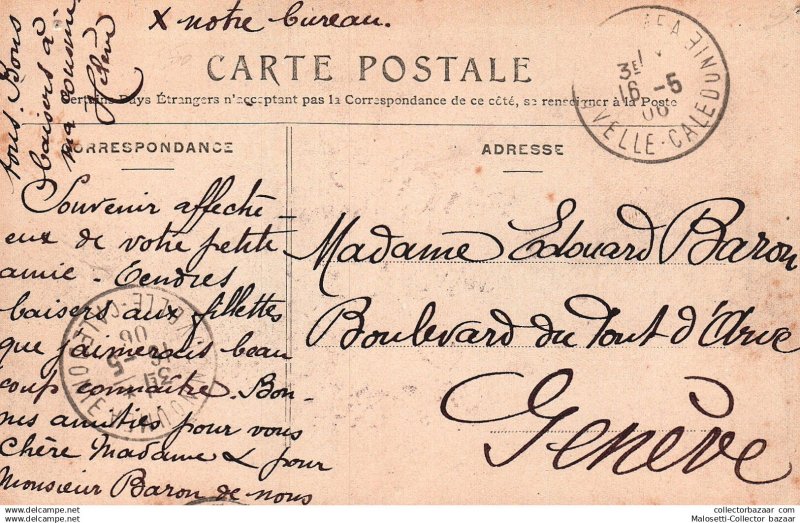 X notre bureau.
CARTE POSTALE
Certains Pays Étrangers n'acceptant pas la Correspondance de ce côté, se renseigner à la Poste
CORRESPONDANCE
Souvenir affectu-
eux de votre petite
amie - Tendres
baisers aux fillettes
que j'aimerais beau
coup connaître. Bon-
nes amitiés pour vous
Chère Madame & pour
Monsieur Baron de nous
tous. Bons
baisers à
ma cousine
ADRESSE
Madame Edouard Baron
Boulevard du Pont d'Arve
Genève
3E
16 -5
06
VELLE-CALEDONIE
3E
5
06
NOUMEA
VELLE-CALEDONIE
hipcollector.com and oldthing.com
Malosetti-Collector bazaar
collectorbazaar.com
Malosetti-Collector bazaar